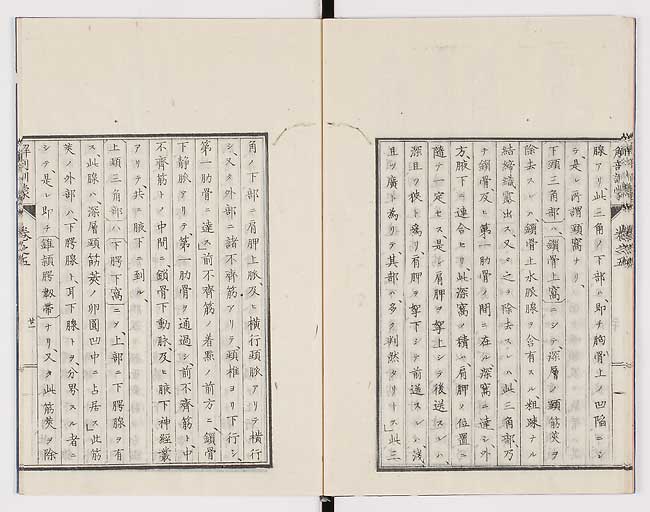 腺アリ此三角ノ下部ハ、即チ胸骨上ノ凹陥ニシ
テ是レ所謂頸窩ナリ、
下頸三角部ハ、鎖骨上窩ニシテ、深層ノ頸筋莢ヲ
除去スレハ、鎖骨上水脈腺ヲ含有スル粗疎ナル
結締織露出ス、又タ之ヲ除去スレハ此三角部乃
チ鎖骨及ヒ第一肋骨ノ間ニ在ル深窩ニ達シ、外
方、腋下ニ連合セリ、此深窩ノ積ハ肩胛ノ位置ニ
隨テ一定セス是レ肩胛ヲ挙上シテ後送スレハ、
深且ツ狭ト為リ、肩胛ヲ挙下シテ前送スレハ、浅
且ツ廣ト為リテ、其部ハ多ク判然タリトス」此三
角ノ下部ニ肩胛上脈及ヒ横行頸脈アリテ横行
シ、又タ外部ニ諸不齊筋アリテ頸椎ヨリ下行シ、
第一肋骨ニ達ス前不齊筋ノ着點ノ前方ニ、鎖骨
下静脈アリテ、第一肋骨ヲ通過シ前不齊筋ト、中
不齊筋トノ中間ニ、鎖骨下動脈、及ヒ腋下神経叢
アリテ、共ニ腋下ニ到ル、
上頸三角部ハ下腭下窩ニシテ、上部ニ下腭腺ヲ有
ス此腺ハ、深層頸筋莢ノ卵圓凹中ニ占居ス」此筋
莢ノ外部ハ、下腭腺ト、耳下腺トヲ、分界スル者ニ
シテ是レ即チ錐頷腭靱帯ナリ、又タ此筋莢ヲ除
解剖訓蒙
巻之五
廿二